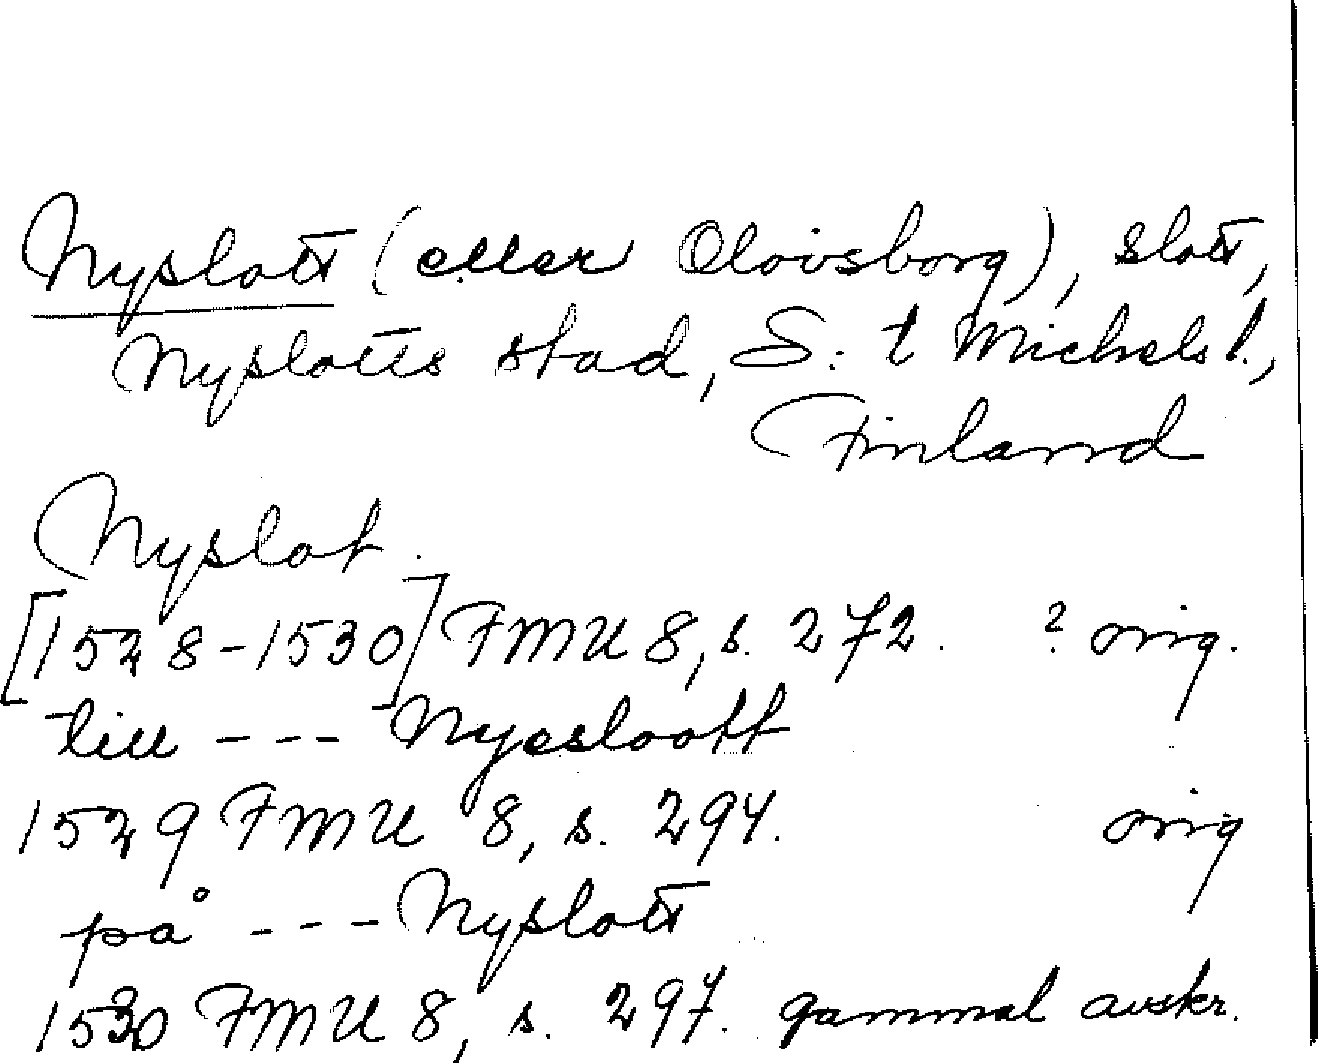 Nyslott (eller Olovsborg), slott,
Nyslotts stad, S:t Michels l.,
Finland
Nyslot
[1528-1530] FMU 8, s. 272. ? orig.
till --- Nyesloott
1529 FMU 8, s. 294. orig
på --- Nyslott
1530 FMU 8, s. 297. gammal avskr.